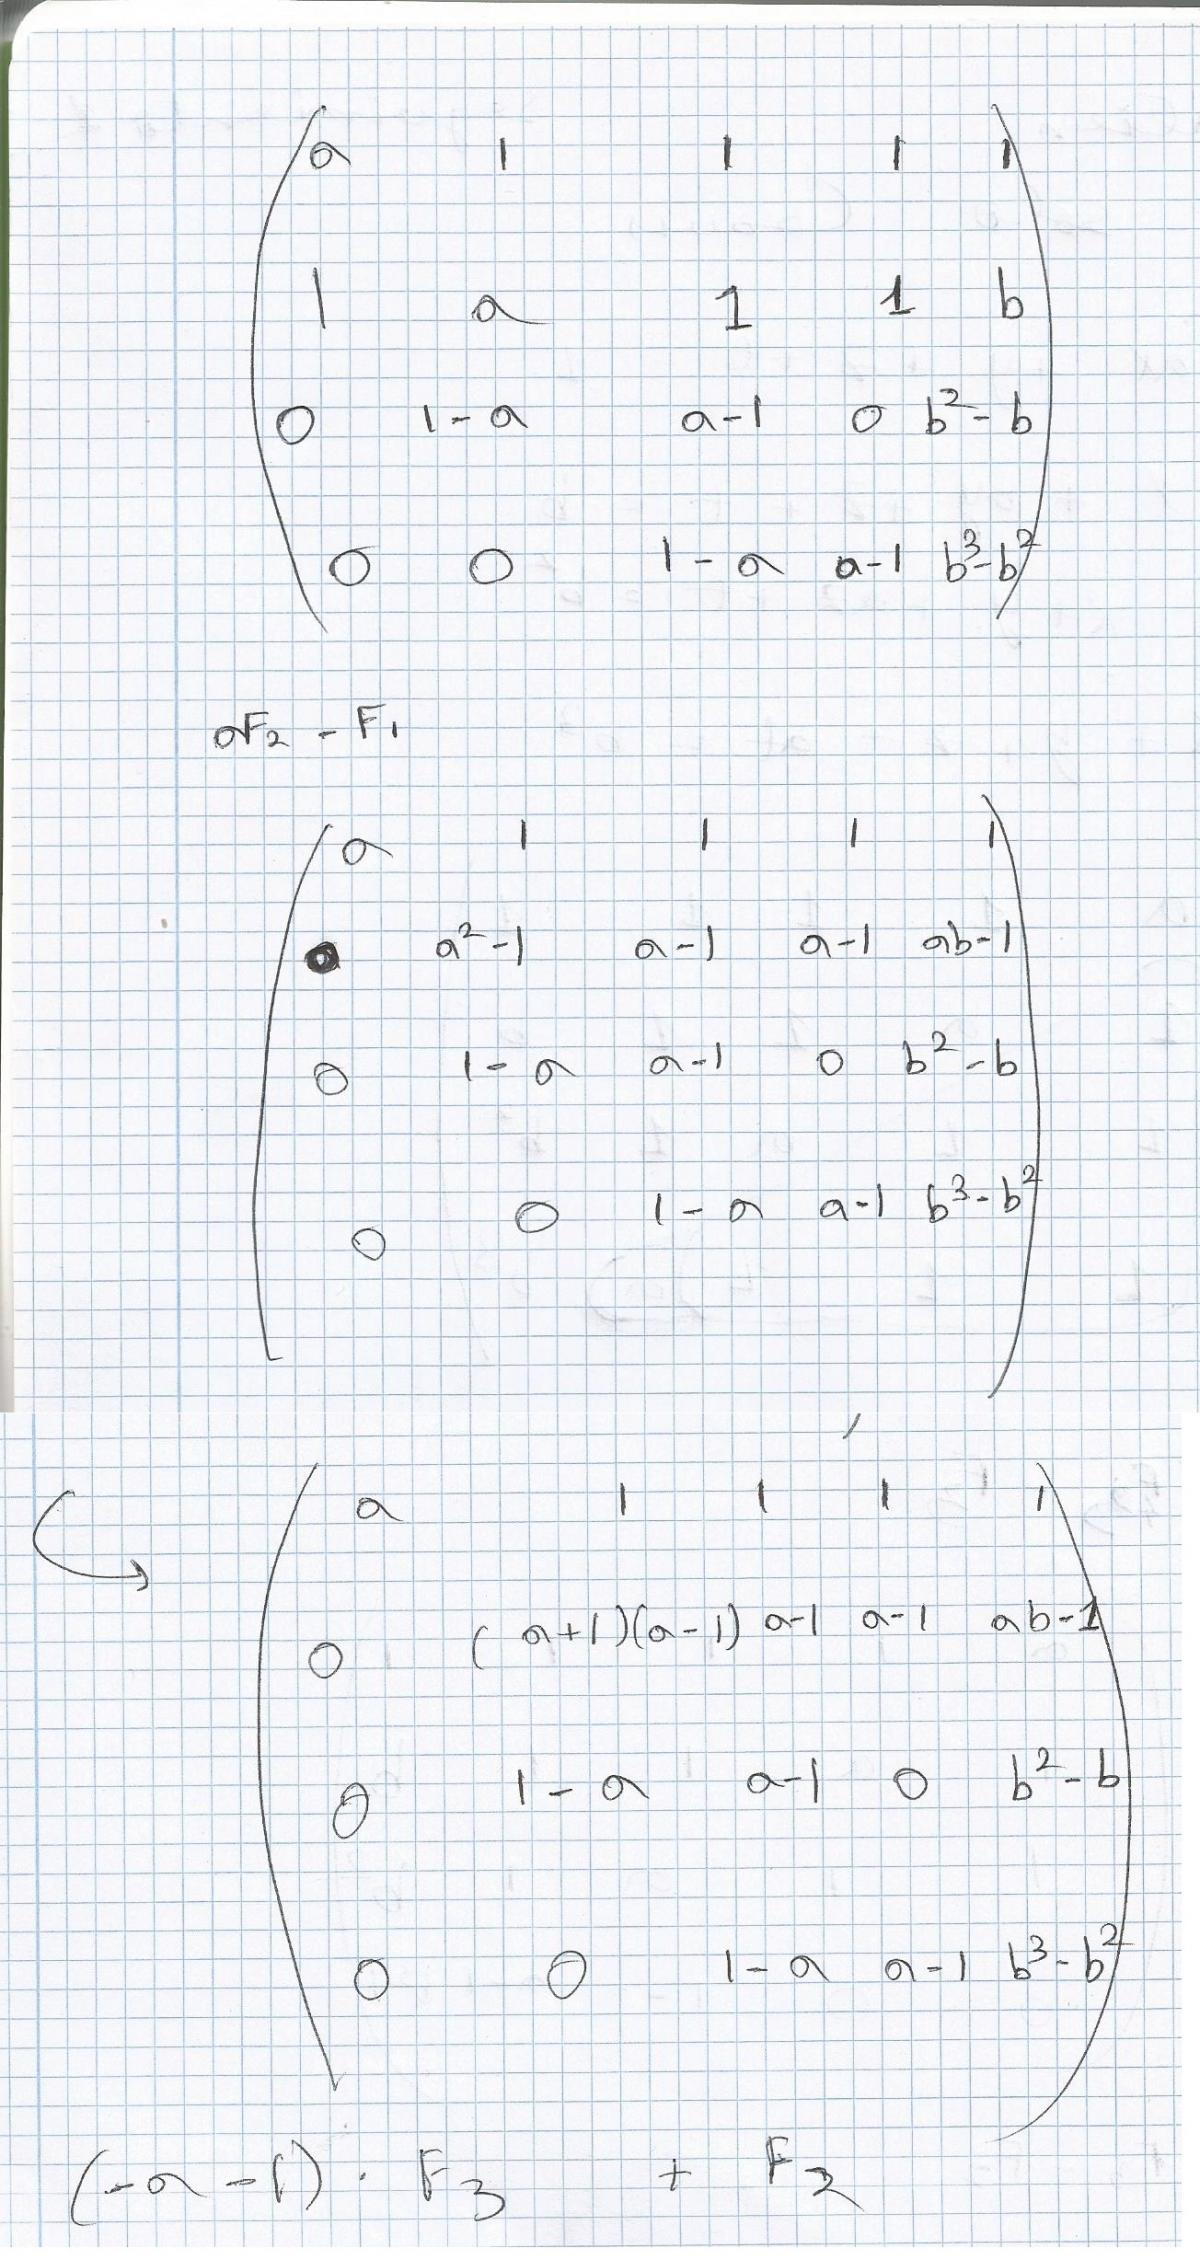 a 1 1 1 1
1 a 1 1 b
0 1-a a-1 0 b²-b
0 0 1-a a-1 b³-b²
aF₂ - F₁
a 1 1 1 1
0 a²-1 a-1 a-1 ab-1
0 1-a a-1 0 b²-b
0 0 1-a a-1 b³-b²
a 1 1 1 1
0 (a+1)(a-1) a-1 a-1 ab-1
0 1-a a-1 0 b²-b
0 0 1-a a-1 b³-b²
(-a-1)·F₃ + F₂